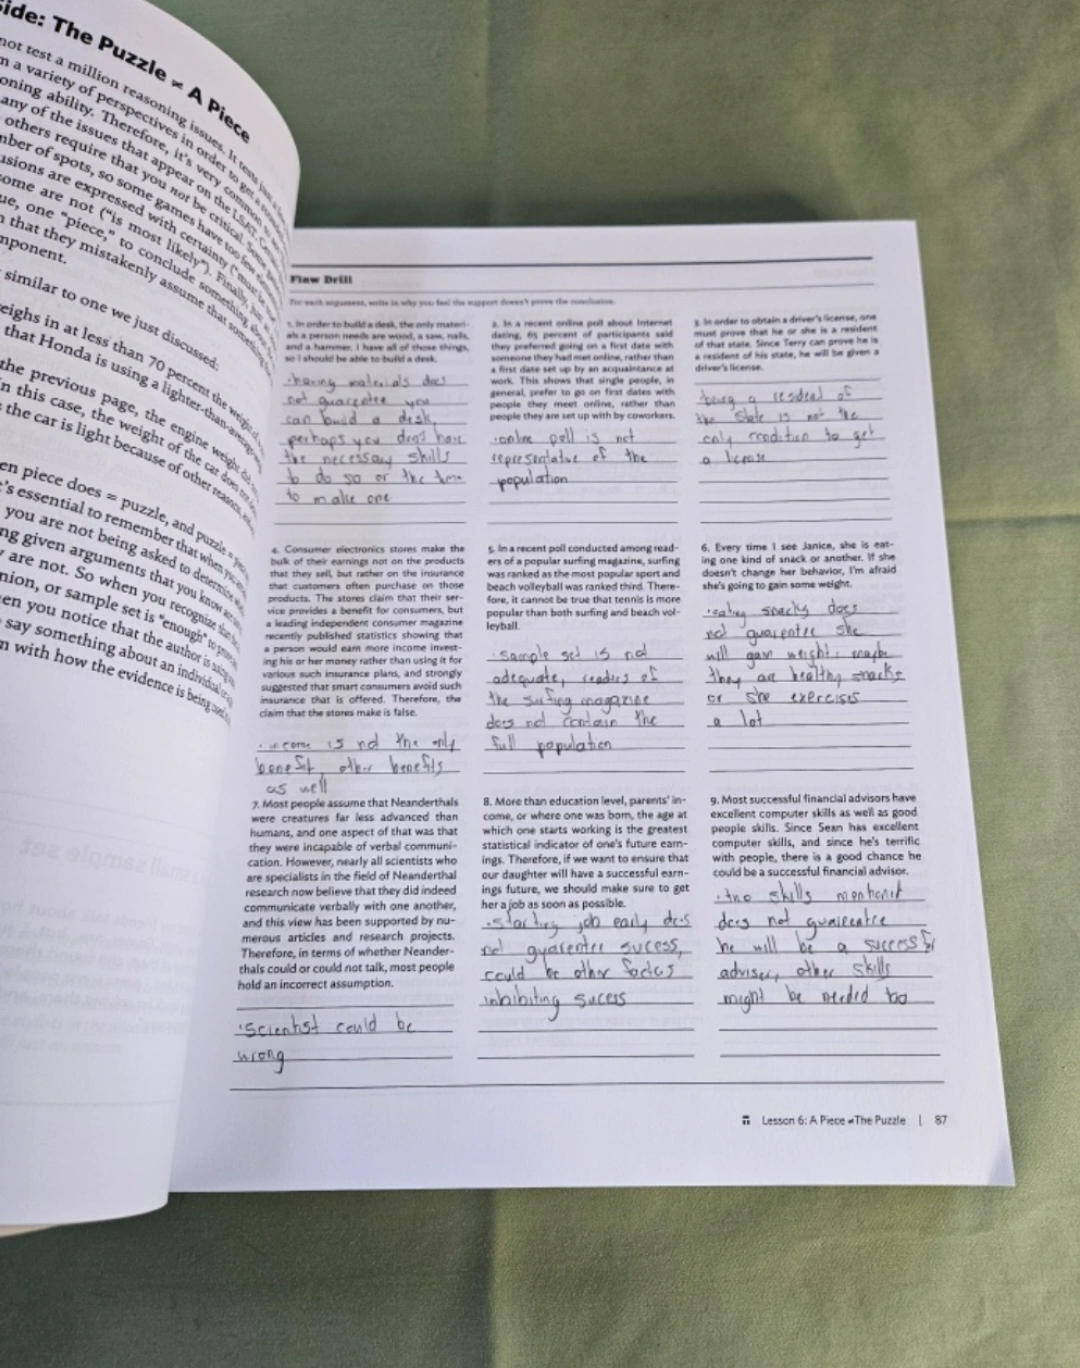 Side: The Puzzle ≠ A Piece
not test a million reasoning issues. It tests
m a variety of perspectives in order to get a
oning ability. Therefore, it's very common
any of the issues that appear on the LSAT.
others require that you not be critical. Some
mber of spots, so some games have too few
usions are expressed with certainty ("must be
ome are not ("is most likely"). Finally, just
ue, one "piece," to conclude something
n that they mistakenly assume that
mponent.
similar to one we just discussed:
eighs in at less than 70 percent the weight of
that Honda is using a lighter-than-average
the previous page, the engine weight
n this case, the weight of the car does not
the car is light because of other reasons,
en piece does = puzzle, and puzzle =
's essential to remember that when you
you are not being asked to determine
ng given arguments that you know are
y are not. So when you recognize that
nion, or sample set is "enough" to prove
en you notice that the author is using
say something about an individual or
n with how the evidence is being used
Flaw Drill
For each argument, write in why you feel the support doesn't prove the conclusion.
1. In order to build a desk, the only materi-
als a person needs are wood, a saw, nails,
and a hammer. I have all of those things,
so I should be able to build a desk.
·having materials does
not guarentee you
can build a desk,
perhaps you dont have
the necessary skills
to do so or the time
to make one
2. In a recent online poll about Internet
dating, 65 percent of participants said
they preferred going on a first date with
someone they had met online, rather than
a first date set up by an acquaintance at
work. This shows that single people, in
general, prefer to go on first dates with
people they meet online, rather than
people they are set up with by coworkers.
·online poll is not
representative of the
population
3. In order to obtain a driver's license, one
must prove that he or she is a resident
of that state. Since Terry can prove he is
a resident of his state, he will be given a
driver's license.
being a resident of
the state is not the
only condition to get
a license
4. Consumer electronics stores make the
bulk of their earnings not on the products
that they sell, but rather on the insurance
that customers often purchase on those
products. The stores claim that their ser-
vice provides a benefit for consumers, but
a leading independent consumer magazine
recently published statistics showing that
a person would earn more income invest-
ing his or her money rather than using it for
various such insurance plans, and strongly
suggested that smart consumers avoid such
insurance that is offered. Therefore, the
claim that the stores make is false.
·income is not the only
benefit, other benefits
as well
5. In a recent poll conducted among read-
ers of a popular surfing magazine, surfing
was ranked as the most popular sport and
beach volleyball was ranked third. There-
fore, it cannot be true that tennis is more
popular than both surfing and beach vol-
leyball.
·sample set is not
adequate, readers of
the surfing magazine
does not contain the
full population
6. Every time I see Janice, she is eat-
ing one kind of snack or another. If she
doesn't change her behavior, I'm afraid
she's going to gain some weight.
·eating snacks does
not guarentee she
will gain weight, maybe
they are healthy snacks
or she exercises
a lot
7. Most people assume that Neanderthals
were creatures far less advanced than
humans, and one aspect of that was that
they were incapable of verbal communi-
cation. However, nearly all scientists who
are specialists in the field of Neanderthal
research now believe that they did indeed
communicate verbally with one another,
and this view has been supported by nu-
merous articles and research projects.
Therefore, in terms of whether Neander-
thals could or could not talk, most people
hold an incorrect assumption.
·scientist could be
wrong
8. More than education level, parents' in-
come, or where one was born, the age at
which one starts working is the greatest
statistical indicator of one's future earn-
ings. Therefore, if we want to ensure that
our daughter will have a successful earn-
ings future, we should make sure to get
her a job as soon as possible.
·starting job early does
not guarentee sucess,
could be other factors
inhibiting sucess
9. Most successful financial advisors have
excellent computer skills as well as good
people skills. Since Sean has excellent
computer skills, and since he's terrific
with people, there is a good chance he
could be a successful financial advisor.
·two skills mentioned
does not guarentee
he will be a successful
adviser, other skills
might be needed too
Lesson 6: A Piece ≠ The Puzzle | 87